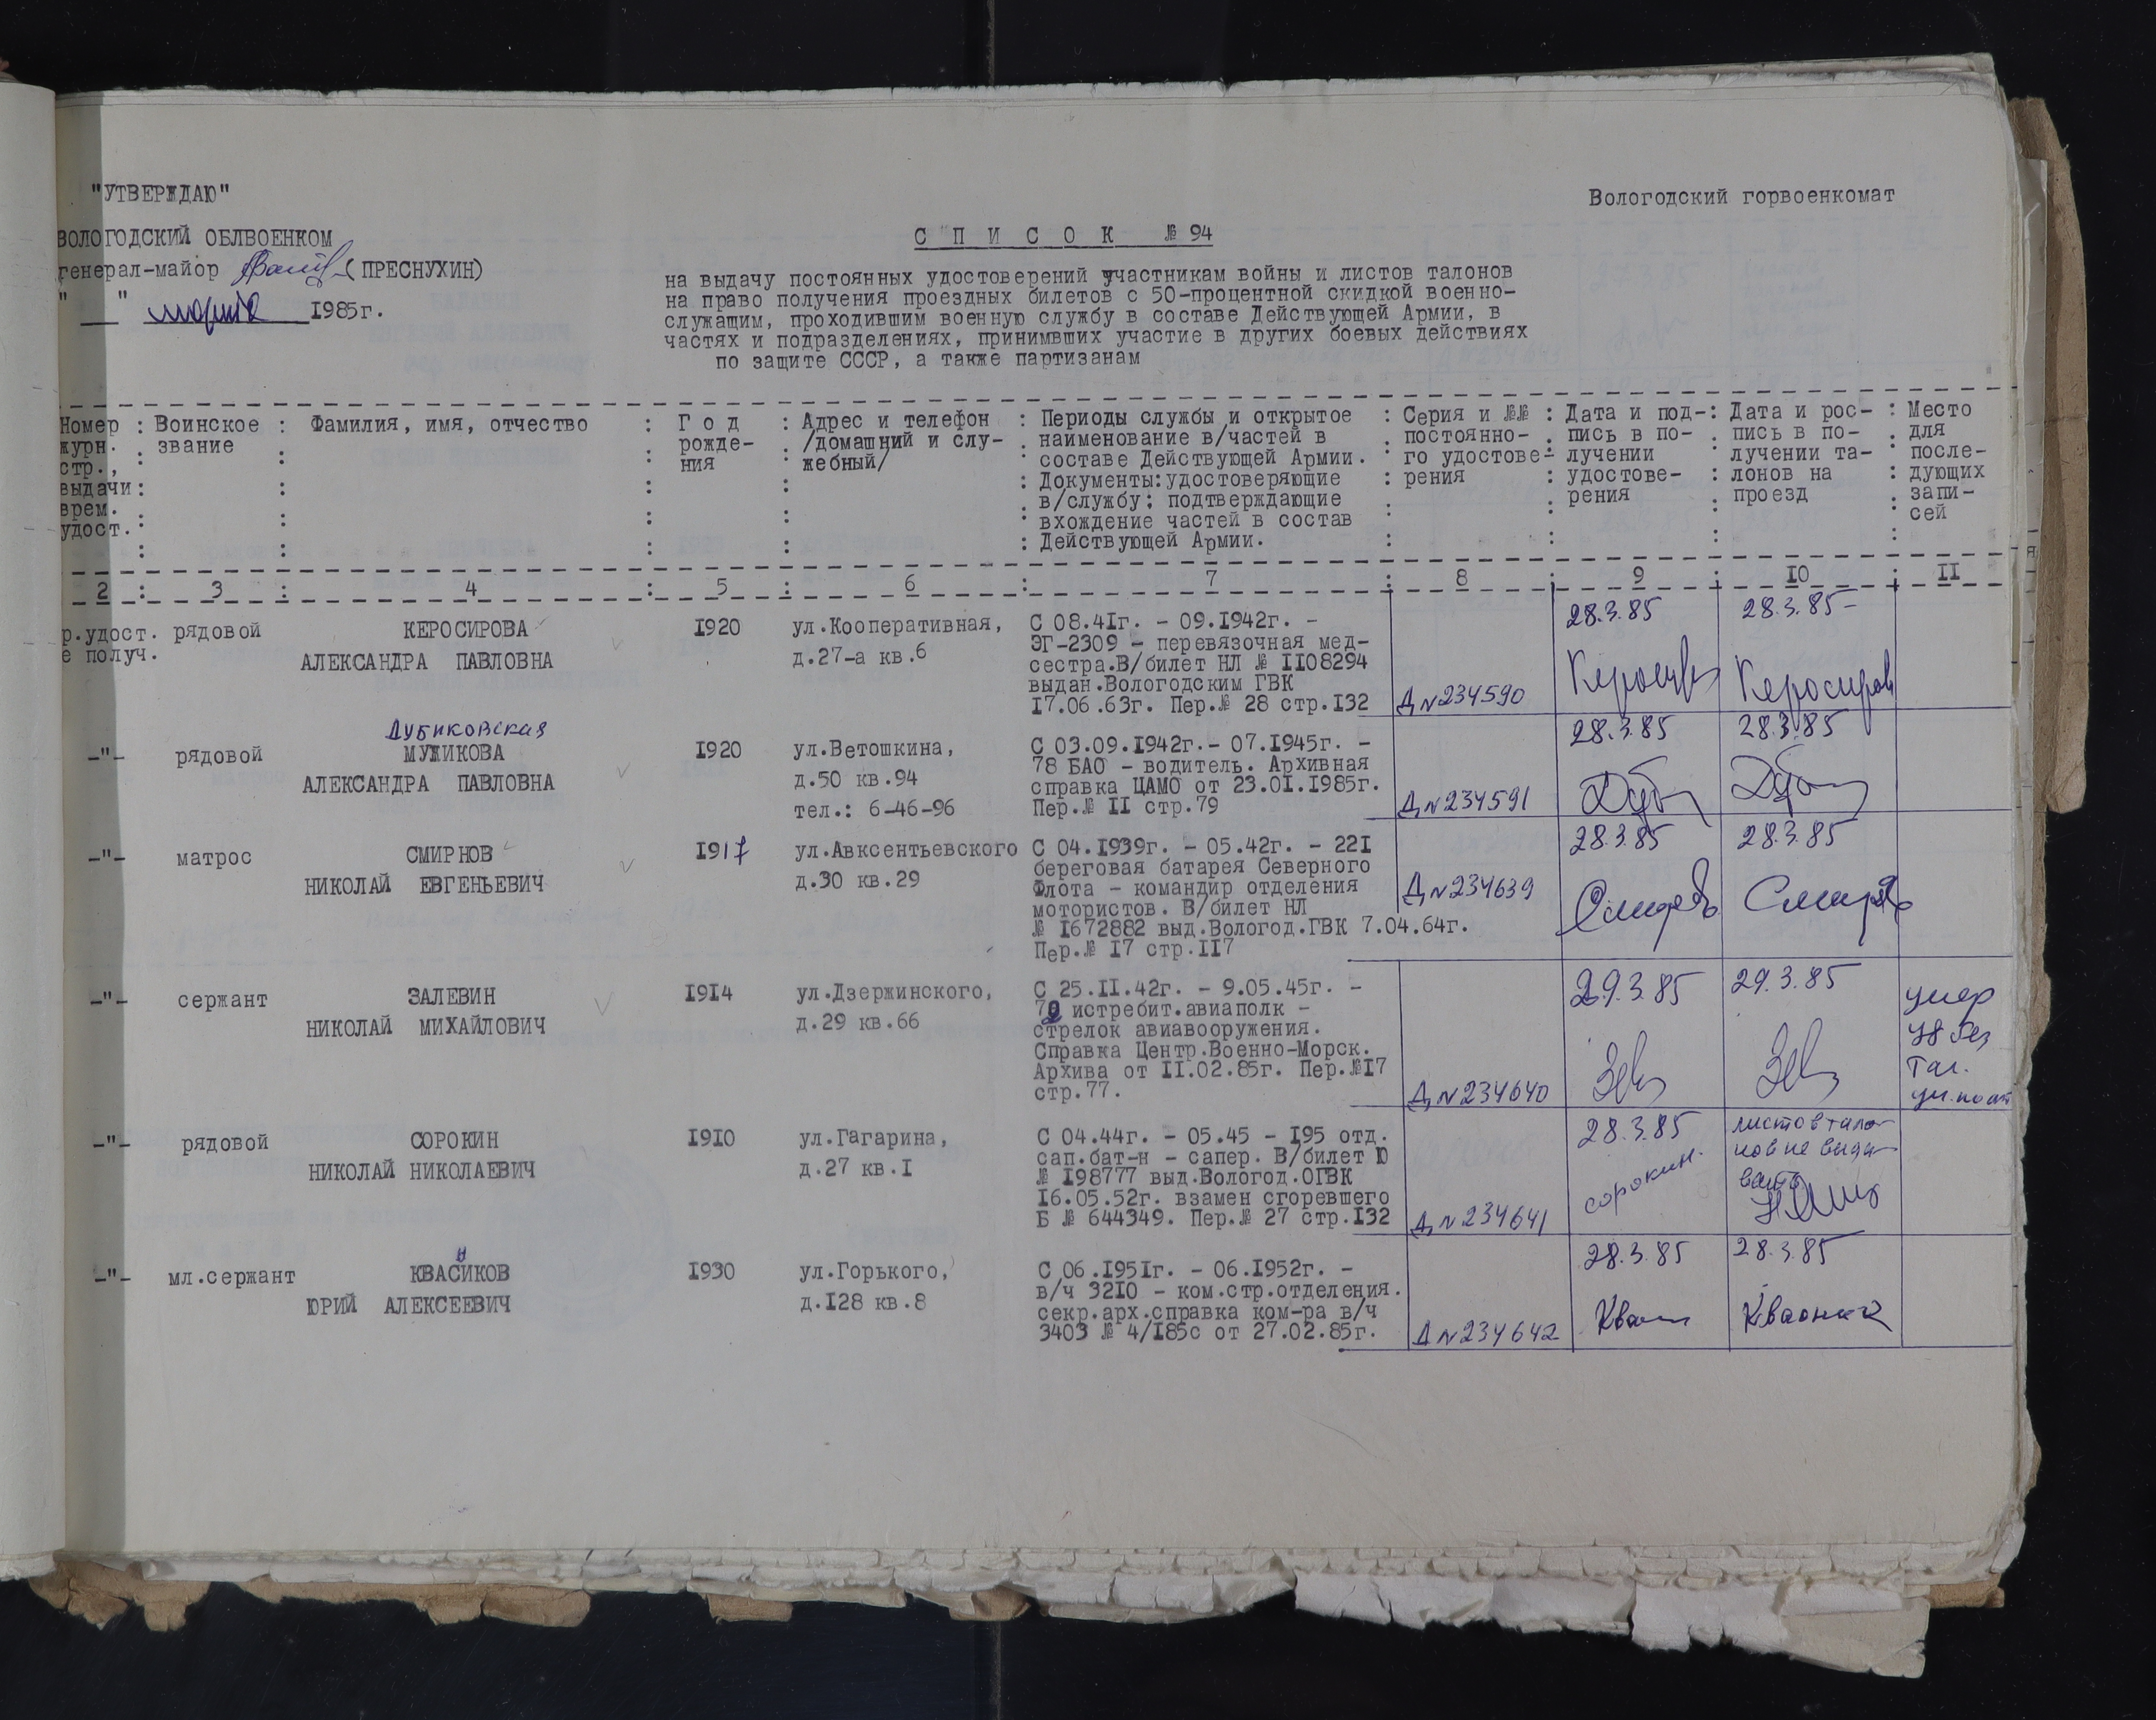 "УТВЕРЖДАЮ"
Вологодский горвоенкомат
ВОЛОГОДСКИЙ ОБЛВОЕНКОМ
генерал-майор (ПРЕСНУХИН)
" " марта 1985г.
С П И С О К № 94
на выдачу постоянных удостоверений участникам войны и листов талонов
на право получения проездных билетов с 50-процентной скидкой военно-
служащим, проходившим военную службу в составе Действующей Армии, в
частях и подразделениях, принимвших участие в других боевых действиях
по защите СССР, а также партизанам
Номер
журн.
стр.,
выдачи
врем.
удост.
Воинское
звание
Фамилия, имя, отчество
Г о д
рожде-
ния
Адрес и телефон
/домашний и слу-
жебный/
Периоды службы и открытое
наименование в/частей в
составе Действующей Армии.
Документы:удостоверяющие
в/службу; подтверждающие
вхождение частей в состав
Действующей Армии.
Серия и №№
постоянно-
го удостове-
рения
Дата и под-
пись в по-
лучении
удостове-
рения
Дата и рос-
пись в по-
лучении та-
лонов на
проезд
Место
для
после-
дующих
запи-
сей
2 3 4 5 6 7 8 9 10 11
р.удост.
е получ.
рядовой
КЕРОСИРОВА
АЛЕКСАНДРА ПАВЛОВНА
1920
ул.Кооперативная,
д.27-а кв.6
С 08.41г. - 09.1942г. -
ЭГ-2309 - перевязочная мед-
сестра.В/билет НЛ № 1108294
выдан.Вологодским ГВК
17.06.63г. Пер.№ 28 стр.132
Д № 234590
28.3.85
28.3.85
Керосиров
-"-
рядовой
Дубиковская
МУЖИКОВА
АЛЕКСАНДРА ПАВЛОВНА
1920
ул.Ветошкина,
д.50 кв.94
тел.: 6-46-96
С 03.09.1942г.- 07.1945г. -
78 БАО - водитель. Архивная
справка ЦАМО от 23.01.1985г.
Пер.№ 11 стр.79
Д № 234591
28.3.85
28.3.85
-"-
матрос
СМИРНОВ
НИКОЛАЙ ЕВГЕНЬЕВИЧ
1917
ул.Авксентьевского
д.30 кв.29
С 04.1939г. - 05.42г. - 221
береговая батарея Северного
Флота - командир отделения
мотористов. В/билет НЛ
№ 1672882 выд.Вологод.ГВК 7.04.64г.
Пер.№ 17 стр.117
Д № 234639
28.3.85
28.3.85
-"-
сержант
ЗАЛЕВИН
НИКОЛАЙ МИХАЙЛОВИЧ
1914
ул.Дзержинского,
д.29 кв.66
С 25.11.42г. - 9.05.45г. -
истребит.авиаполк -
стрелок авиавооружения.
Справка Центр.Военно-Морск.
Архива от 11.02.85г. Пер.№17
стр.77.
Д № 234640
29.3.85
29.3.85
умер
Тал.
-"-
рядовой
СОРОКИН
НИКОЛАЙ НИКОЛАЕВИЧ
1910
ул.Гагарина,
д.27 кв.1
С 04.44г. - 05.45 - 195 отд.
сап.бат-н - сапер. В/билет Ю
№ 198777 выд.Вологод.ОГВК
16.05.52г. взамен сгоревшего
Б № 644349. Пер.№ 27 стр.132
Д № 234641
28.3.85
сорокин.
листов тало-
нов не выда-
вать
-"-
мл.сержант
н
КВАСИКОВ
ЮРИЙ АЛЕКСЕЕВИЧ
1930
ул.Горького,
д.128 кв.8
С 06.1951г. - 06.1952г. -
в/ч 3210 - ком.стр.отделения.
секр.арх.справка ком-ра в/ч
3403 № 4/185с от 27.02.85г.
Д № 234642
28.3.85
28.3.85